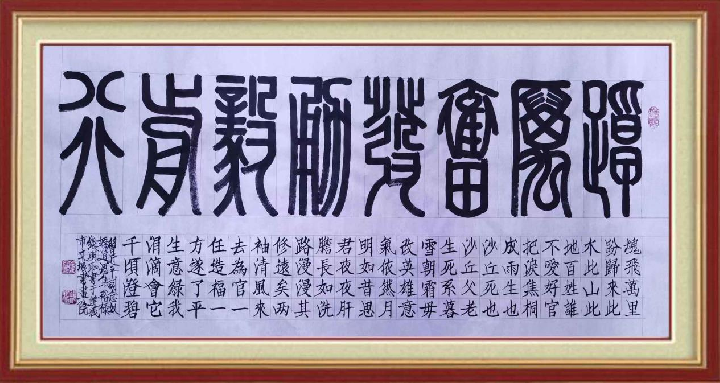 踔厲奮發勇毅前行
魂飛萬里
盼歸來此
水此山此
地百姓誰
不愛好官
把淚焦桐
成雨生也
沙丘死也
沙丘父老
生死系暮
雪朝霜毋
改英雄意
氣依然月
明如昔思
君夜夜肝
膽長如洗
路漫漫其
修遠矣兩
袖清風來
去為官一
任造福一
方遂了平
生意綠我
涓滴會它
千頃澄碧